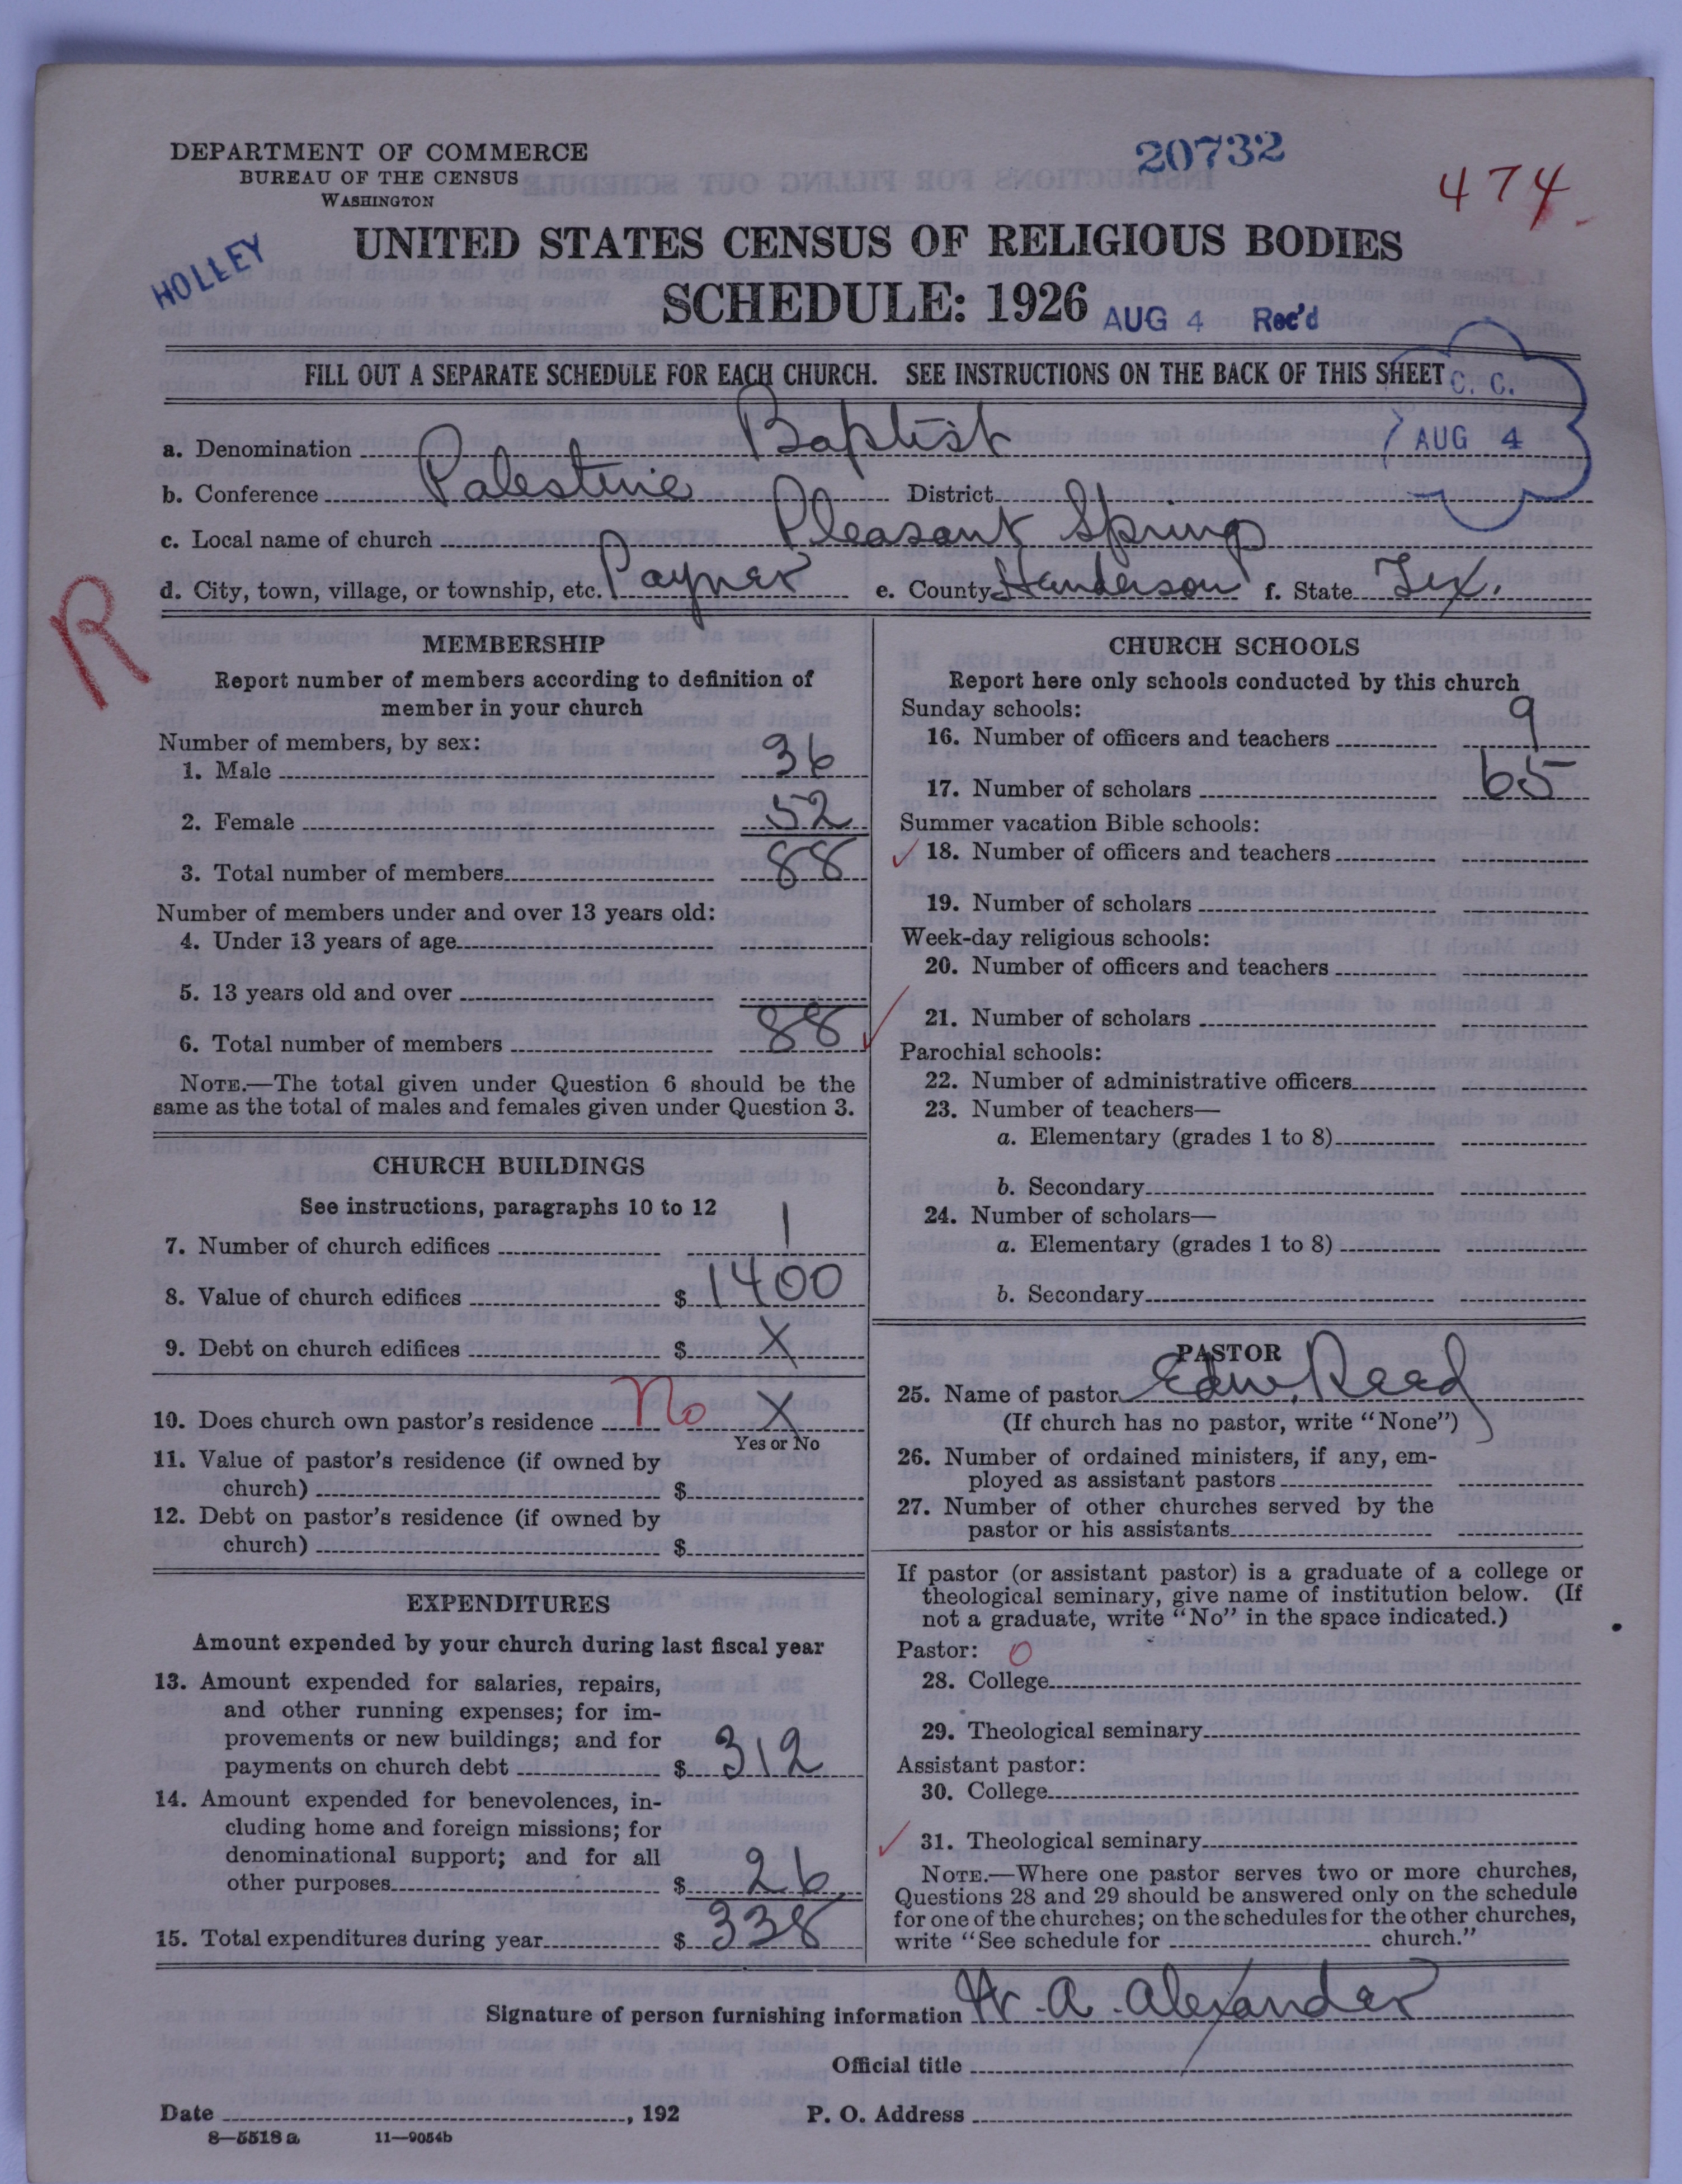 DEPARTMENT OF COMMERCE
BUREAU OF THE CENSUS
WASHINGTON
20732
474
HOLLEY
UNITED STATES CENSUS OF RELIGIOUS BODIES
SCHEDULE: 1926
AUG 4 Rec'd
FILL OUT A SEPARATE SCHEDULE FOR EACH CHURCH. SEE INSTRUCTIONS ON THE BACK OF THIS SHEET
C. C.
AUG 4
a. Denomination Baptist
b. Conference Palestine District
c. Local name of church Pleasant Spring
d. City, town, village, or township, etc. Payner e. County Handerson f. State Tex.
R
MEMBERSHIP
Report number of members according to definition of
member in your church
Number of members, by sex:
1. Male 36
2. Female 52
3. Total number of members 88
Number of members under and over 13 years old:
4. Under 13 years of age
5. 13 years old and over
6. Total number of members 88
NOTE.—The total given under Question 6 should be the
same as the total of males and females given under Question 3.
CHURCH BUILDINGS
See instructions, paragraphs 10 to 12
7. Number of church edifices 1
8. Value of church edifices $ 1400
9. Debt on church edifices $ X
10. Does church own pastor's residence No X
Yes or No
11. Value of pastor's residence (if owned by
church) $
12. Debt on pastor's residence (if owned by
church) $
EXPENDITURES
Amount expended by your church during last fiscal year
13. Amount expended for salaries, repairs,
and other running expenses; for im-
provements or new buildings; and for
payments on church debt $ 312
14. Amount expended for benevolences, in-
cluding home and foreign missions; for
denominational support; and for all
other purposes $ 26
15. Total expenditures during year $ 338
CHURCH SCHOOLS
Report here only schools conducted by this church
Sunday schools:
16. Number of officers and teachers 9
17. Number of scholars 65
Summer vacation Bible schools:
18. Number of officers and teachers
19. Number of scholars
Week-day religious schools:
20. Number of officers and teachers
21. Number of scholars
Parochial schools:
22. Number of administrative officers
23. Number of teachers—
a. Elementary (grades 1 to 8)
b. Secondary
24. Number of scholars—
a. Elementary (grades 1 to 8)
b. Secondary
PASTOR
25. Name of pastor Edw. Reed
(If church has no pastor, write "None")
26. Number of ordained ministers, if any, em-
ployed as assistant pastors
27. Number of other churches served by the
pastor or his assistants
If pastor (or assistant pastor) is a graduate of a college or
theological seminary, give name of institution below. (If
not a graduate, write "No" in the space indicated.)
Pastor: 0
28. College
29. Theological seminary
Assistant pastor:
30. College
31. Theological seminary
NOTE.—Where one pastor serves two or more churches,
Questions 28 and 29 should be answered only on the schedule
for one of the churches; on the schedules for the other churches,
write "See schedule for church."
Signature of person furnishing information A. Alexander
Official title
Date , 192 P. O. Address
8—5518 a 11—9054b